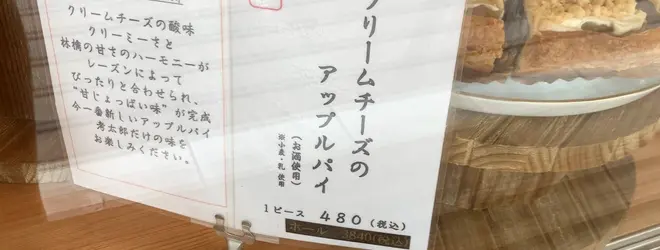 クリームチーズの酸味
クリーミーさと
林檎の甘さのハーモニーが
レーズンによって
ぴったりと合わせられ、
“甘じょっぱい味”が完成
今一番新しいアップルパイ
考太郎だけの味を
お楽しみください。
クリームチーズの
アップルパイ
(お酒使用)
※小麦・乳 使用
1ピース 480(税込)
ホール 3840(税込)